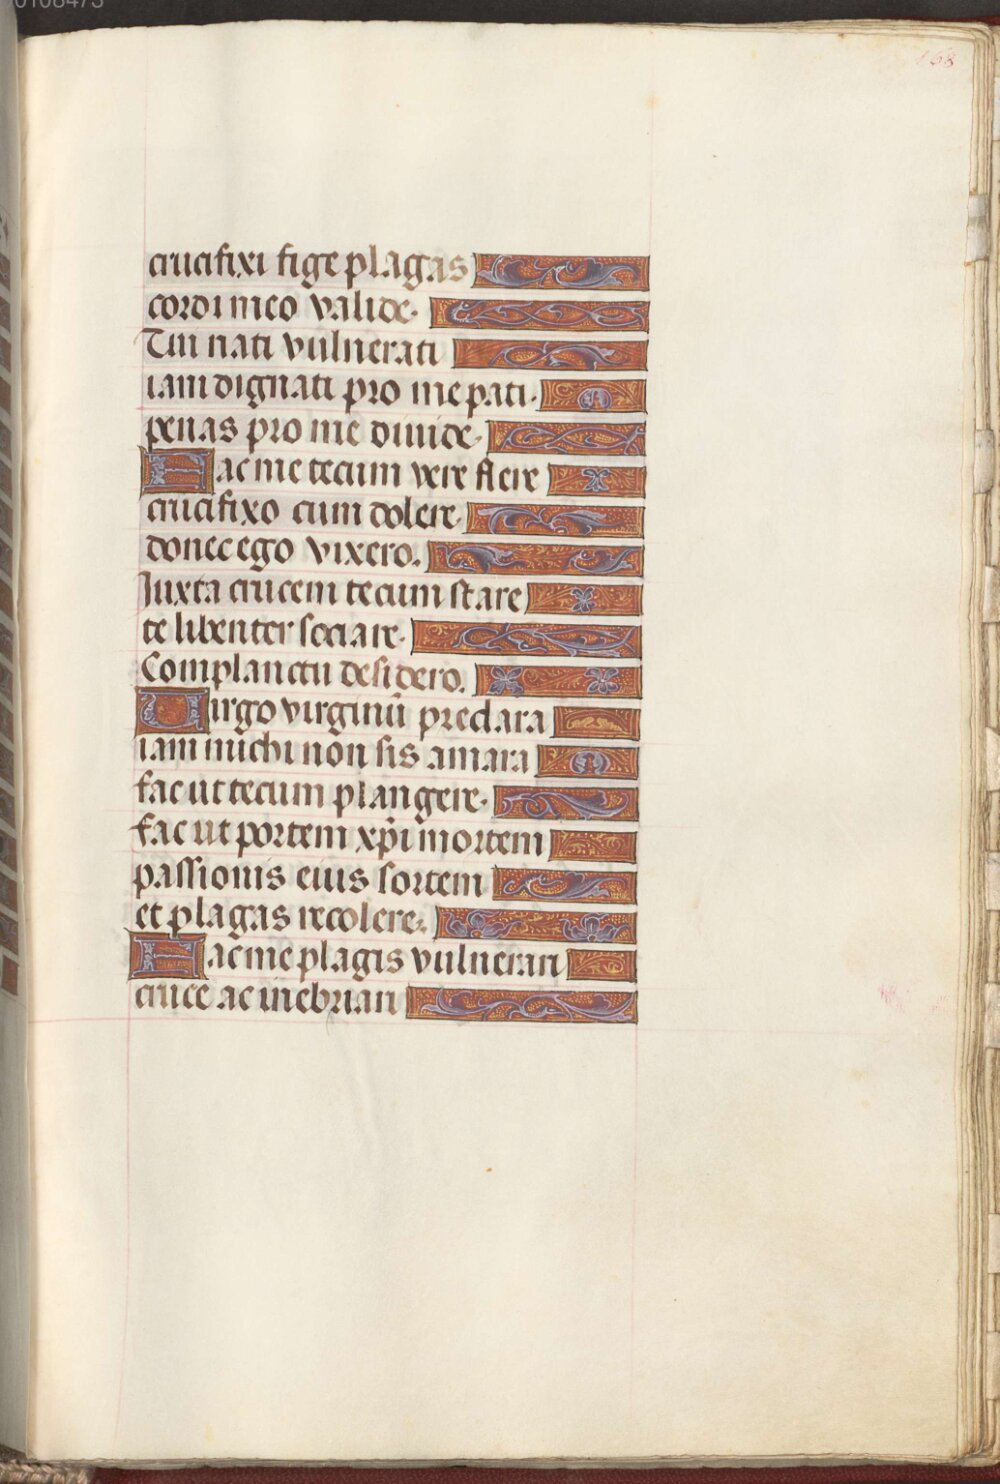 00108473
168
crucifixi fige plagas
cordi meo valide.
Tui nati vulnerati
iam dignati pro me pati.
penas pro me diuide.
Fac me tecum vere flere
crucifixo cum dolere.
donec ego vixero.
Iuxta crucem tecum stare
te libenter sociare.
Complanctu desidero.
Virgo virginū preclara
iam michi non sis amara
fac ut tecum plangere.
fac ut portem xp̄i mortem
passionis eius sortem
et plagas recolere.
Fac me plagis vulnerari
cruce ac inebriari